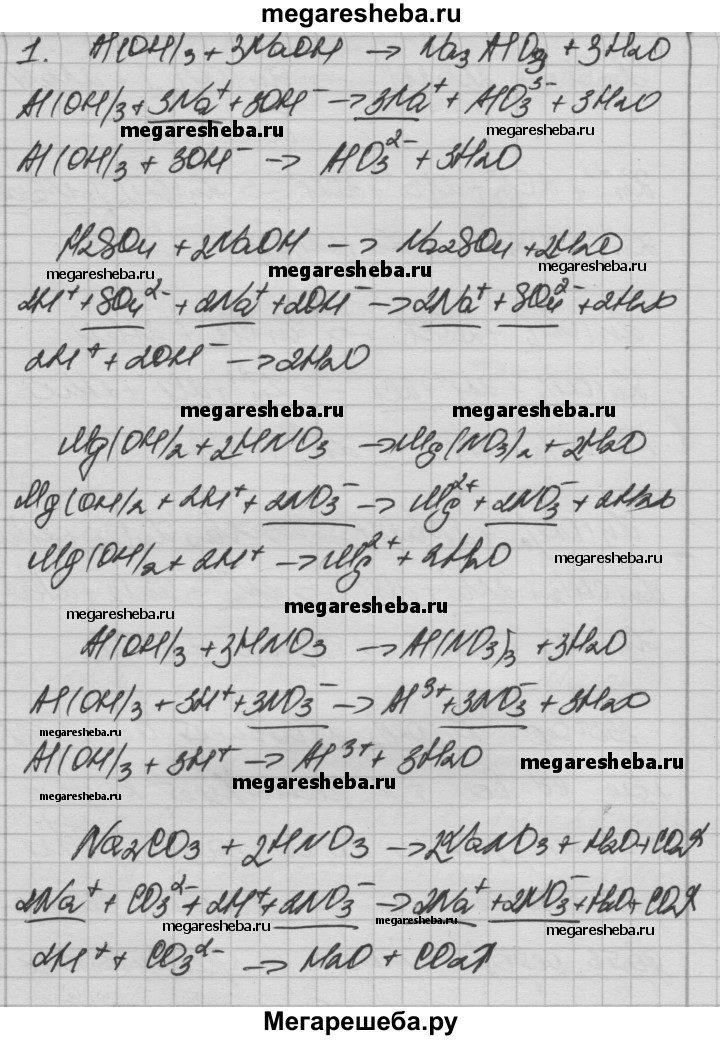 megaresheba.ru
1. Al(OH)3 + 3NaOH → Na3AlO3 + 3H2O
Al(OH)3 + 3Na⁺ + 3OH⁻ → 3Na⁺ + AlO3³⁻ + 3H2O
megaresheba.ru megaresheba.ru
Al(OH)3 + 3OH⁻ → AlO3²⁻ + 3H2O
H2SO4 + 2NaOH → Na2SO4 + 2H2O
megaresheba.ru megaresheba.ru megaresheba.ru
2H⁺ + SO4²⁻ + 2Na⁺ + 2OH⁻ → 2Na⁺ + SO4²⁻ + 2H2O
2H⁺ + 2OH⁻ → 2H2O
megaresheba.ru megaresheba.ru
Mg(OH)2 + 2HNO3 → Mg(NO3)2 + 2H2O
Mg(OH)2 + 2H⁺ + 2NO3⁻ → Mg²⁺ + 2NO3⁻ + 2H2O
Mg(OH)2 + 2H⁺ → Mg²⁺ + 2H2O
megaresheba.ru
megaresheba.ru megaresheba.ru
Al(OH)3 + 3HNO3 → Al(NO3)3 + 3H2O
Al(OH)3 + 3H⁺ + 3NO3⁻ → Al³⁺ + 3NO3⁻ + 3H2O
megaresheba.ru
Al(OH)3 + 3H⁺ → Al³⁺ + 3H2O
megaresheba.ru megaresheba.ru
megaresheba.ru
Na2CO3 + 2HNO3 → 2NaNO3 + H2O + CO2↑
2Na⁺ + CO3²⁻ + 2H⁺ + 2NO3⁻ → 2Na⁺ + 2NO3⁻ + H2O + CO2↑
megaresheba.ru megaresheba.ru megaresheba.ru
2H⁺ + CO3²⁻ → H2O + CO2↑
Мегарешеба.ру